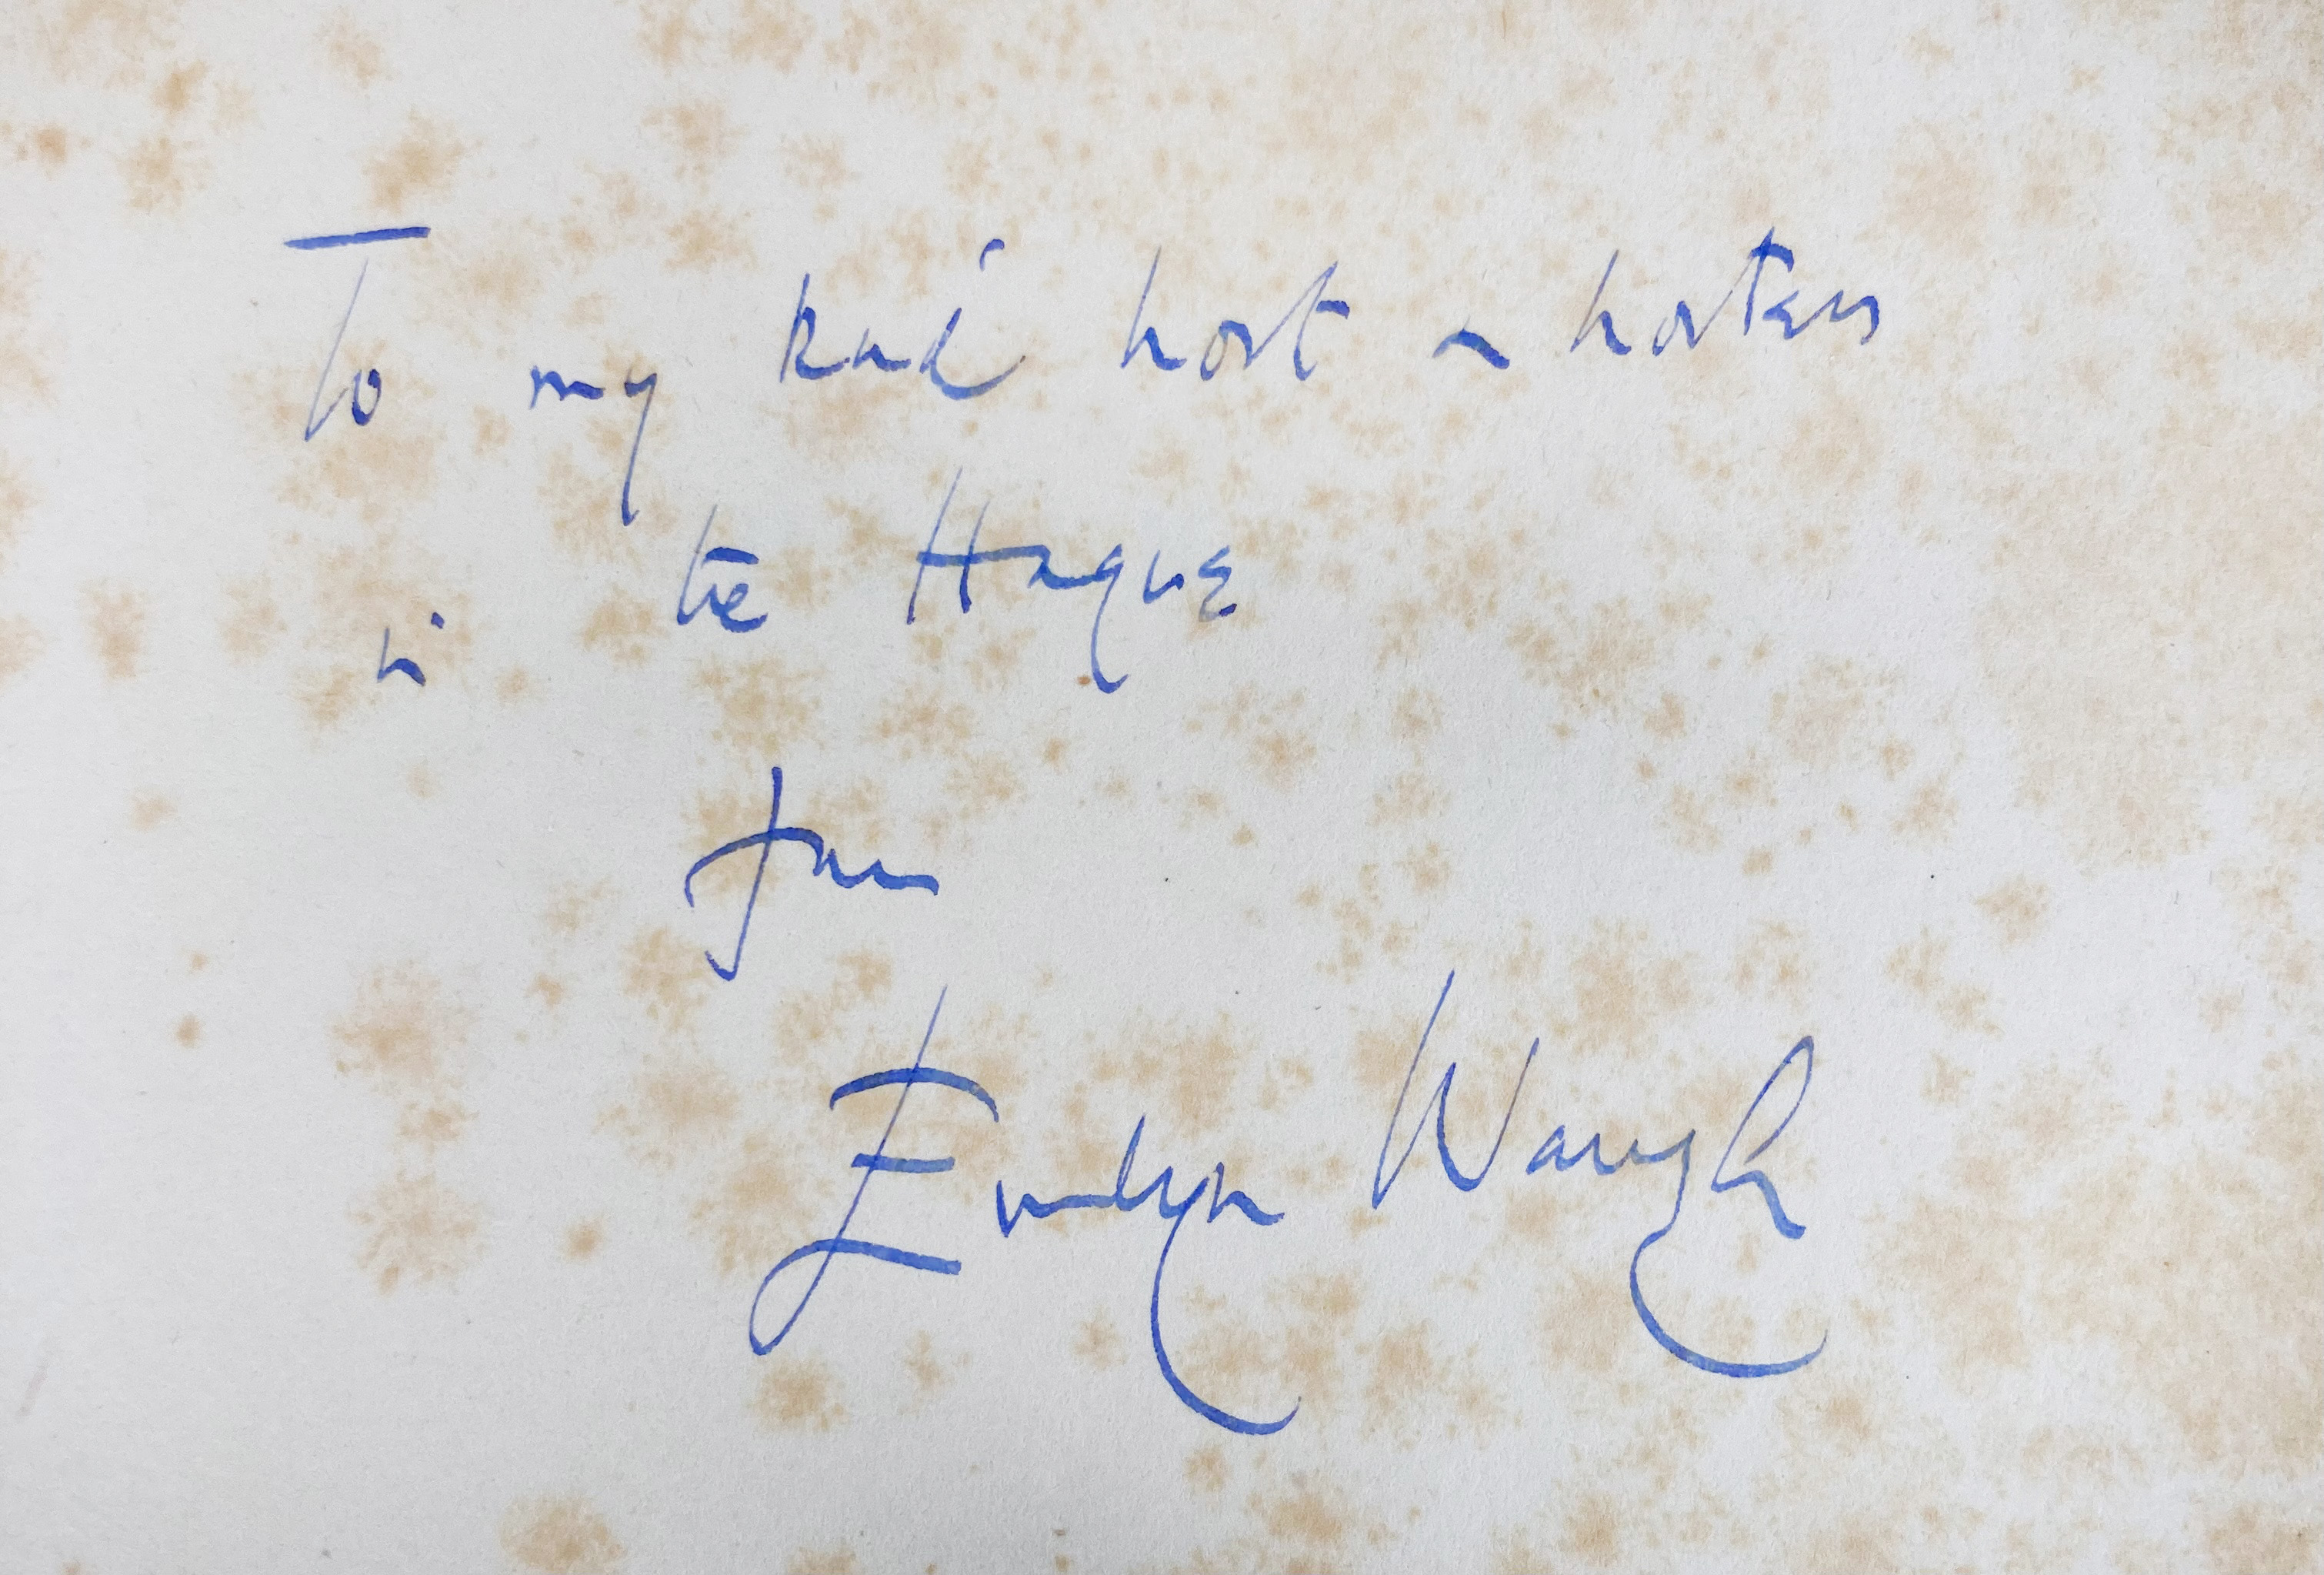 To my kind host & hostess
in the Hague
from
Evelyn Waugh